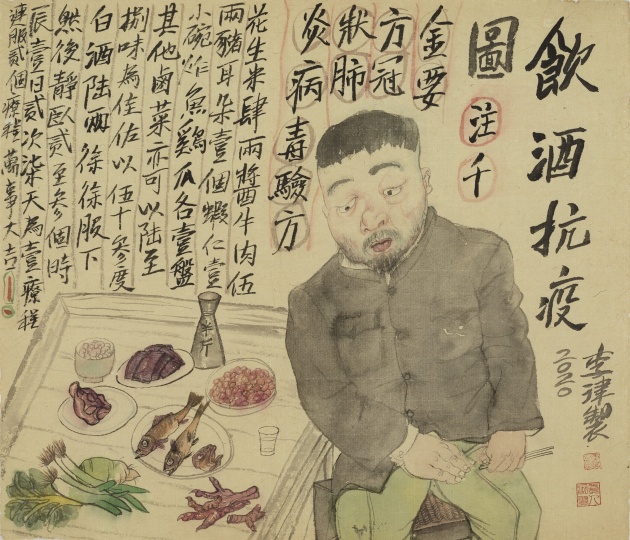 飲酒抗疫
圖
注千
金要
方冠
狀肺
炎病毒驗方
花生米肆兩醬牛肉伍
兩豬耳朵壹個蝦仁壹
小碗炸魚雞爪各壹盤
其他鹵菜亦可以陸至
捌味為佳佐以伍十叁度
白酒陸兩徐徐服下
然後靜臥貳至叁個時
辰壹日貳次柒天為壹療程
連服貳個療程萬事大吉
李津製
二〇二〇
半斤